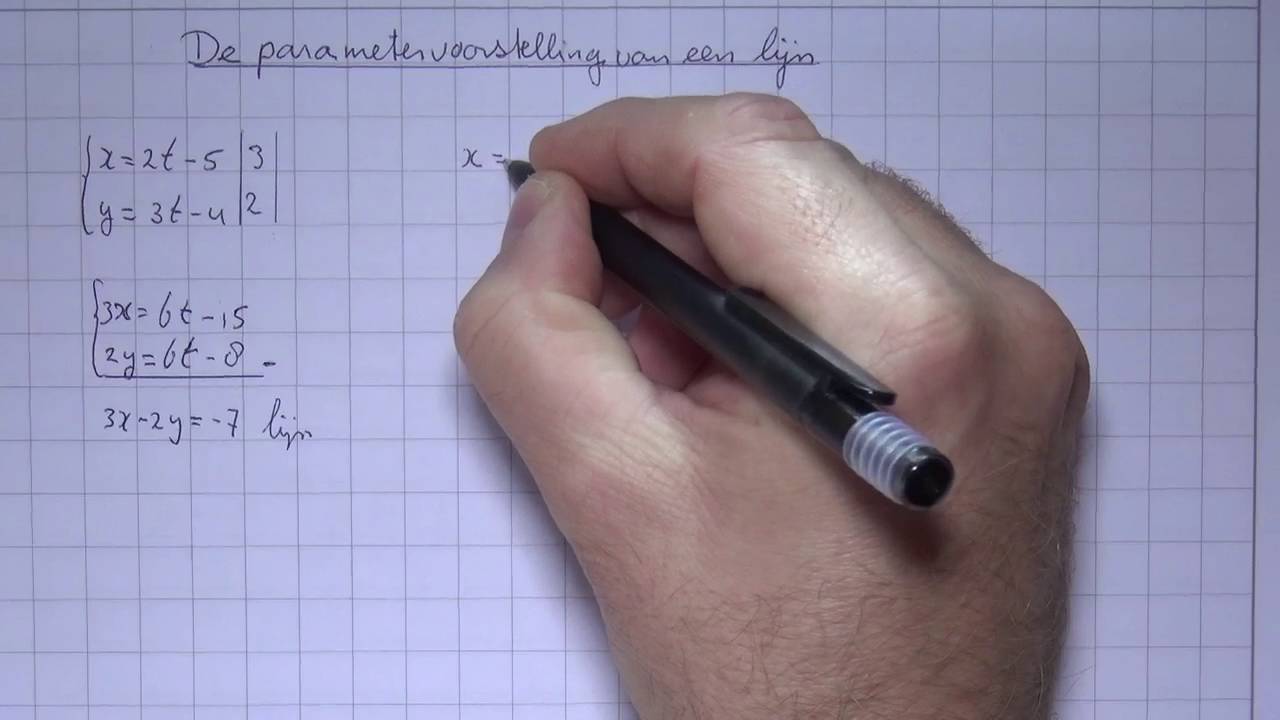 De parametervoorstelling van een lijn
x = 2t - 5 | 3 |
y = 3t - 4 | 2 |
3x = 6t - 15
2y = 6t - 8 -
3x - 2y = -7 lijn
x =